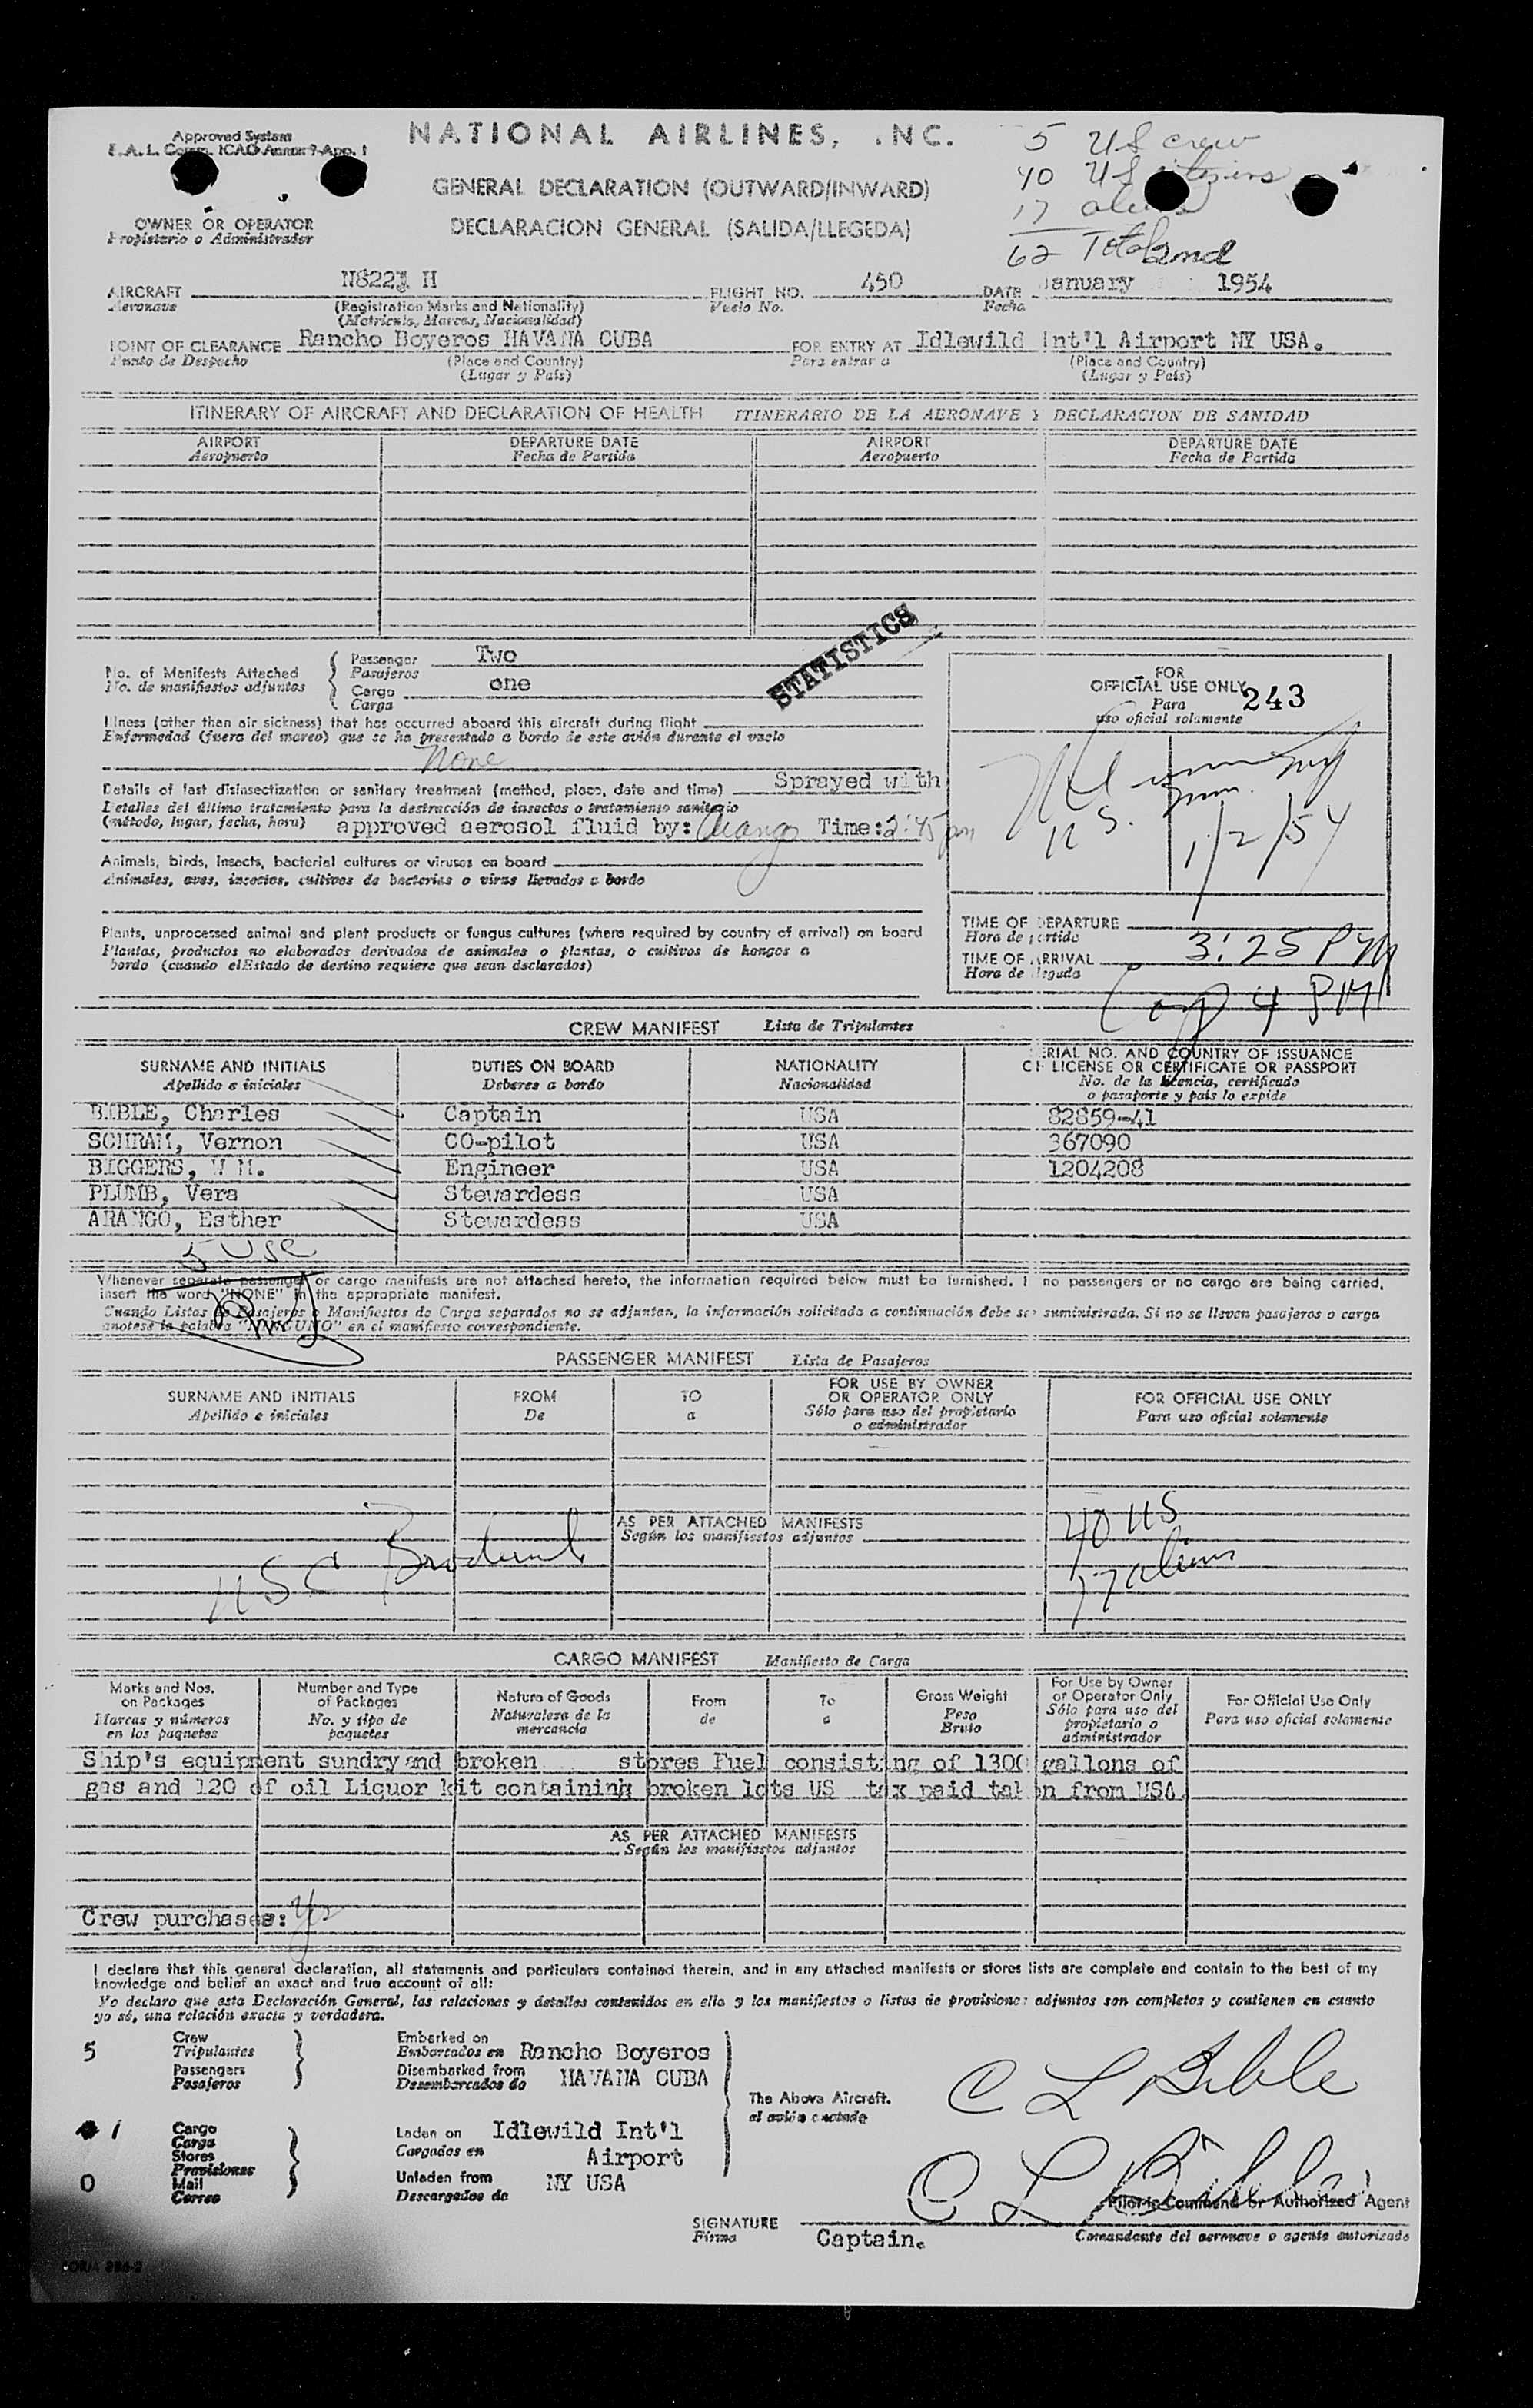 Approved System
E.A.L. Comm. ICAO Annex 9-App. 1
NATIONAL AIRLINES, INC.
GENERAL DECLARATION (OUTWARD/INWARD)
DECLARACION GENERAL (SALIDA/LLEGEDA)
5 US crew
40 US
17 aliens
62 Total
2nd
OWNER OR OPERATOR
Propietario o Administrador
AIRCRAFT N8221 H FLIGHT NO. 450 DATE January 1954
Aeronave (Registration Marks and Nationality) Vuelo No. Fecha
(Matricula, Marcas, Nacionalidad)
POINT OF CLEARANCE Rancho Boyeros HAVANA CUBA FOR ENTRY AT Idlewild Int'l Airport NY USA.
Punto de Despacho (Place and Country) Para entrar a (Place and Country)
(Lugar y País) (Lugar y País)
ITINERARY OF AIRCRAFT AND DECLARATION OF HEALTH ITINERARIO DE LA AERONAVE Y DECLARACION DE SANIDAD
AIRPORT DEPARTURE DATE AIRPORT DEPARTURE DATE
Aeropuerto Fecha de Partida Aeropuerto Fecha de Partida
STATISTICS
No. of Manifests Attached Passenger Two
No. de manifiestos adjuntos Pasajeros
Cargo one
Carga
FOR
OFFICIAL USE ONLY 243
Para
uso oficial solamente
Illness (other than air sickness) that has occurred aboard this aircraft during flight
Enfermedad (fuera del mareo) que se ha presentado a bordo de este avión durante el vuelo
None
Details of last disinsectization or sanitary treatment (method, place, date and time) Sprayed with
Detalles del último tratamiento para la destrucción de insectos o tratamiento sanitario
(método, lugar, fecha, hora) approved aerosol fluid by: Arango Time: 2:45 pm
U.S. Imm.
1/2/54
Animals, birds, insects, bacterial cultures or viruses on board
Animales, aves, insectos, cultivos de bacterias o virus llevados a bordo
Plants, unprocessed animal and plant products or fungus cultures (where required by country of arrival) on board
Plantas, productos no elaborados derivados de animales o plantas, o cultivos de hongos a
bordo (cuando el Estado de destino requiere que sean declarados)
TIME OF DEPARTURE
Hora de partida 3:25 PM
TIME OF ARRIVAL
Hora de llegada
4 PM
CREW MANIFEST Lista de Tripulantes
SURNAME AND INITIALS DUTIES ON BOARD NATIONALITY SERIAL NO. AND COUNTRY OF ISSUANCE
Apellido e iniciales Deberes a bordo Nacionalidad OF LICENSE OR CERTIFICATE OR PASSPORT
No. de la licencia, certificado
o pasaporte y país lo expide
BIBLE, Charles Captain USA 82859-41
SCHRAM, Vernon CO-pilot USA 367090
BIGGERS, W M. Engineer USA 1204208
PLUMB, Vera Stewardess USA
ARANGO, Esther Stewardess USA
5 USC
Whenever separate passenger or cargo manifests are not attached hereto, the information required below must be furnished. If no passengers or no cargo are being carried,
insert the word "NONE" in the appropriate manifest.
Cuando Listos de Pasajeros o Manifiestos de Carga separados no se adjuntan, la información solicitada a continuación debe ser suministrada. Si no se lleven pasajeros o carga
anotese la palabra "NINGUNO" en el manifiesto correspondiente.
PASSENGER MANIFEST Lista de Pasajeros
SURNAME AND INITIALS FROM TO FOR USE BY OWNER FOR OFFICIAL USE ONLY
Apellido e iniciales De a OR OPERATOR ONLY Para uso oficial solamente
Sólo para uso del propietario
o administrador
AS PER ATTACHED MANIFESTS
Según los manifiestos adjuntos
40 US
17 aliens
USC
CARGO MANIFEST Manifiesto de Carga
Marks and Nos. on Packages Number and Type of Packages Nature of Goods From To Gross Weight For Use by Owner or Operator Only For Official Use Only
Marcas y números en los paquetes No. y tipo de paquetes Naturaleza de la mercancia de a Peso Bruto Sólo para uso del propietario o administrador Para uso oficial solamente
Ship's equipment sundry and broken stores Fuel consisting of 1300 gallons of
gas and 120 of oil Liquor kit containing broken lots US tax paid taken from USA.
AS PER ATTACHED MANIFESTS
Según los manifiestos adjuntos
Crew purchases: Yes
I declare that this general declaration, all statements and particulars contained therein, and in any attached manifests or stores lists are complete and contain to the best of my
knowledge and belief an exact and true account of all:
Yo declaro que esta Declaración General, las relaciones y detalles contenidos en ella y los manifiestos o listas de provisiones adjuntos son completos y contienen en cuanto
yo sé, una relación exacta y verdadera.
5 Crew Embarked on
Tripulantes Embarcados en Rancho Boyeros
Passengers Disembarked from HAVANA CUBA
Pasajeros Desembarcados de
The Above Aircraft.
al avión anotado
C L Bible
1 Cargo Laden on Idlewild Int'l
Carga Cargados en Airport
Stores
Provisiones
0 Mail Unladen from NY USA
Correo Descargados de
C L Bible
Pilot in Command or Authorized Agent
SIGNATURE
Firma Captain. Comandante del aeronave o agente autorizado
FORM 886-2